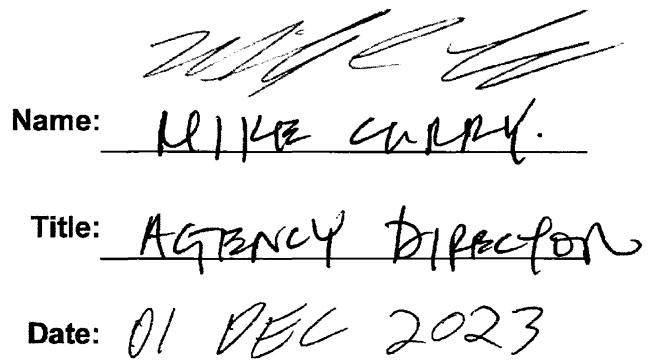 Name: MIKE CURRY.
Title: AGENCY DIRECTOR
Date: 01 DEC 2023